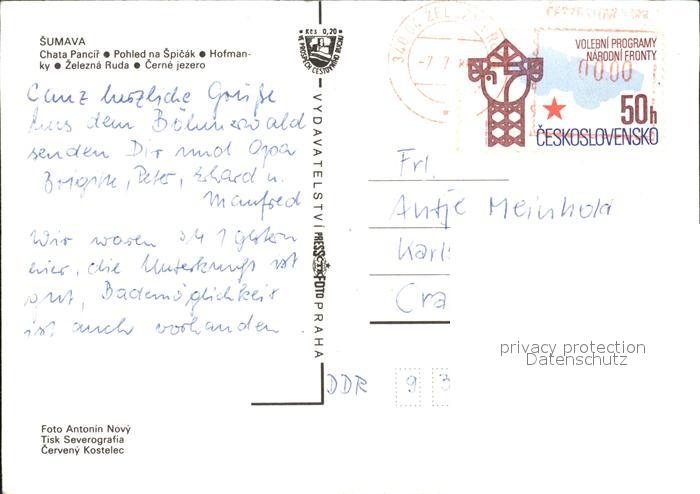 ŠUMAVA
Chata Pancíř ● Pohled na Špičák ● Hofman-
ky ● Železná Ruda ● Černé jezero
Ganz herzliche Grüße
aus dem Böhmerwald
senden Dir und Opa
Brigitte, Peter, Erhard u.
Manfred
Wir waren 1 gestern
hier, die Unterkunft ist
gut, Bademöglichkeit
ist auch vorhanden.
Foto Antonín Nový
Tisk Severografia
Červený Kostelec
Kčs 0,20
VE PROSPĚCH CESTOVNÍHO RUCHU
VYDAVATELSTVÍ PRESSFOTO PRAHA
340 04 ŽEL
-7.7.8
VOLEBNÍ PROGRAMY
NÁRODNÍ FRONTY
50h
ČESKOSLOVENSKO
Frl.
Antje Meinhold
Karl
Cra
privacy protection
Datenschutz
DDR 9 3